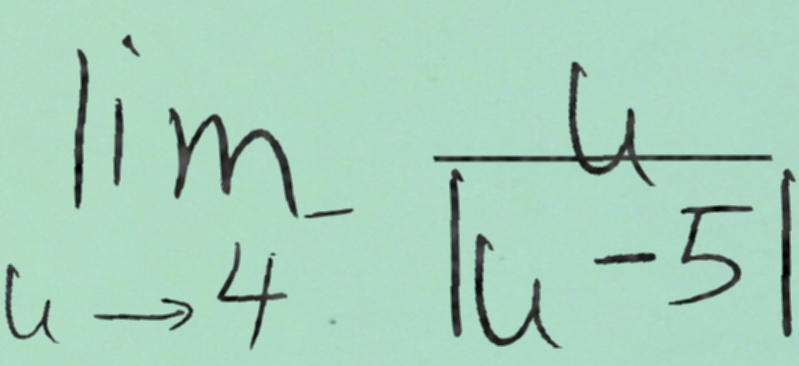 lim_{u→4^-} \frac{u}{|u-5|}